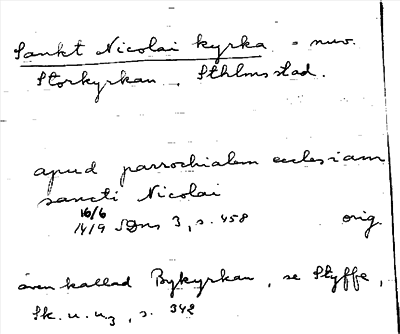 Sankt Nicolai kyrka = nuv.
Storkyrkan, Sthlms stad.
apud parrochialem ecclesiam
sancti Nicolai
16/6
14/9 SDns 3, s. 458 orig.
även kallad Bykyrkan, se Styffe,
Sk. u. u3, s. 342